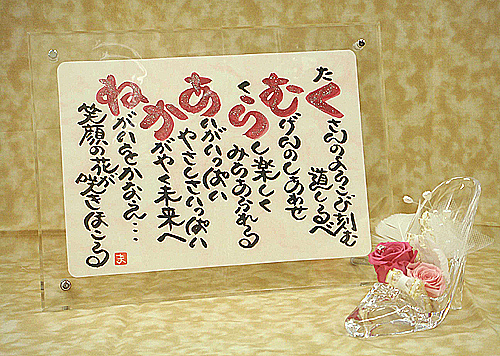 たくさんのよろこび刻む
道しるべ
むげんのしあわせ
くらし楽しく
みちあふれる
あいがいっぱい
やさしさいっぱい
かがやく未来へ
ねがいをかなえ…
笑顔の花が咲きほこる